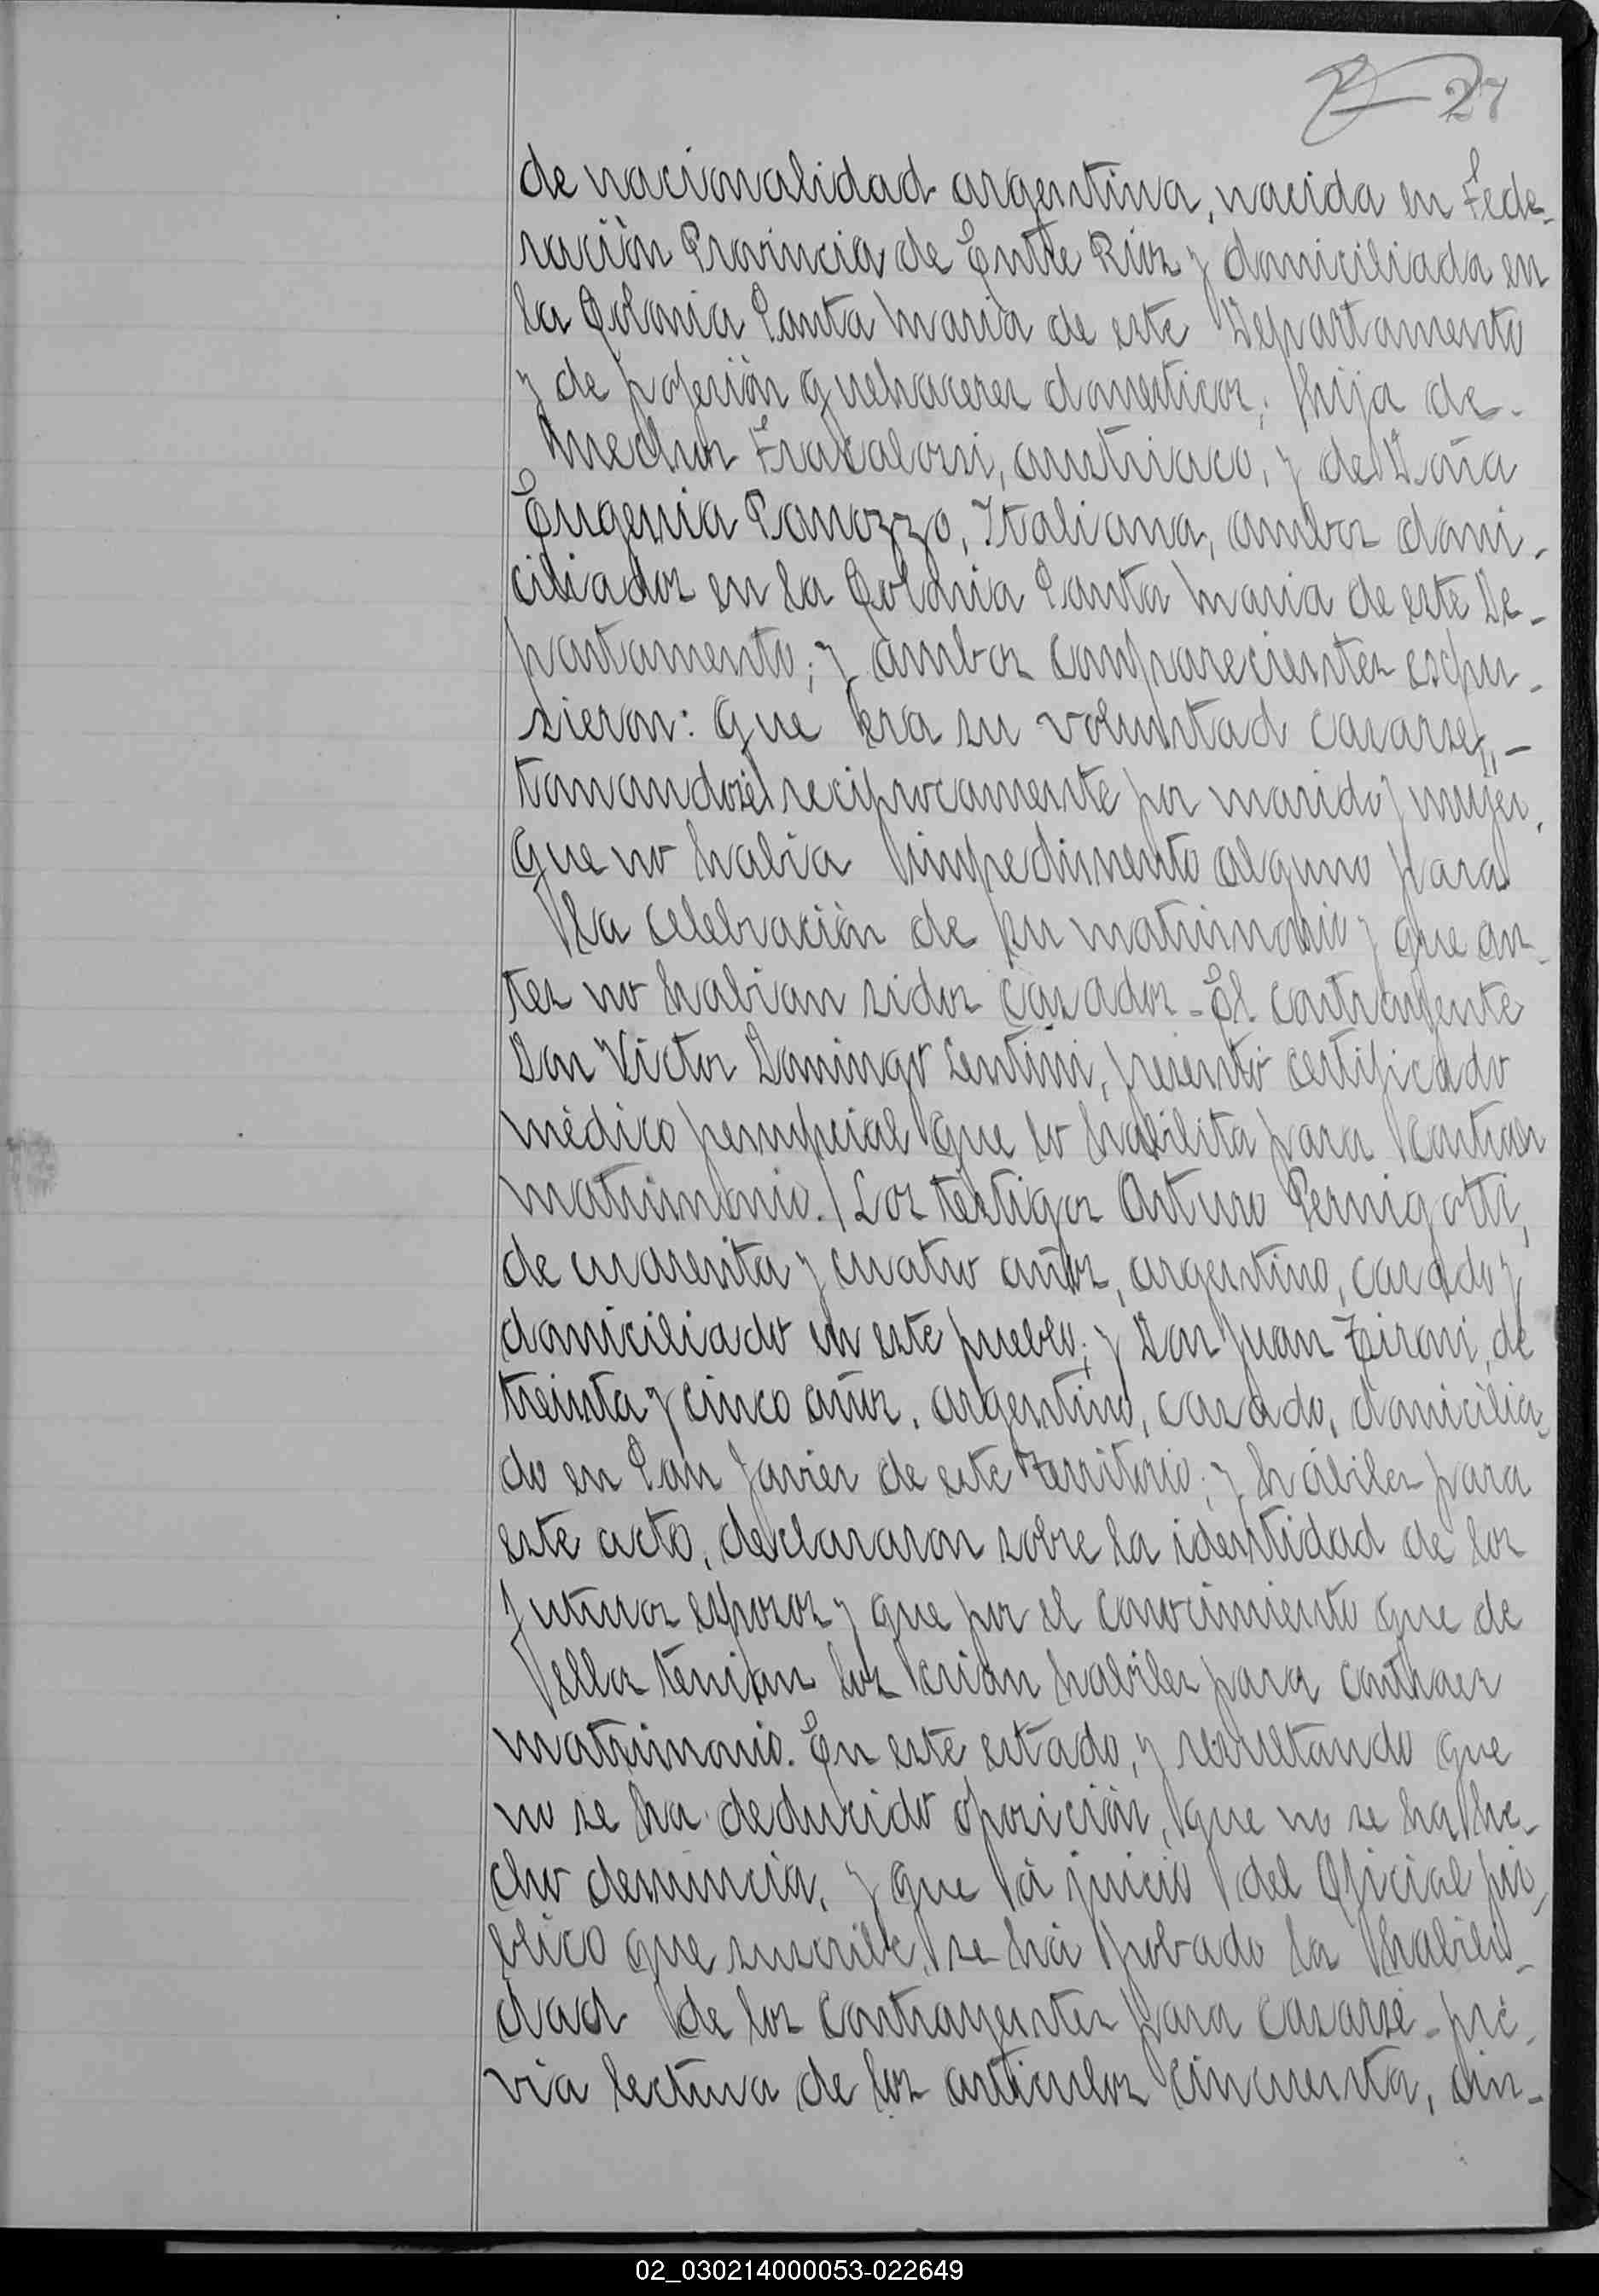 27
de nacionalidad argentina, nacida en Fede-
ración Provincia de Entre Rios y domiciliada en
la Colonia Santa Maria de este Departamento
y de profesión quehaceres domesticos; hija de-
Fracalossi, austriaco, y de Doña
Eugenia Panozzo, Italiana, ambos domi-
ciliados en la Colonia Santa Maria de este De-
partamento; y ambos comparecientes espu-
sieron: que era su voluntad casarse,-
tomandose reciprocamente por marido y mujer,
que no habia impedimento alguno para
la celebración de su matrimonio y que an-
tes no habian sidos casados - El contrayente
Don Victor Domingo Lentini, presentó certificado
médico penupcial que lo habilita para contraer
matrimonio. Los testigos Arturo Pernigotti,
de cuarenta y cuatro años, argentino, casado y
domiciliado en este pueblo; y Don Juan Zironi, de
treinta y cinco años, argentino, casado, domicilia-
do en San Javier de este Territorio; y hábiles para
este acto, declararon sobre la identidad de los
futuros esposos y que por el conocimiento que de
ellos tenian los crian habiles para contraer
matrimonio. En este estado, y resultando que
no se ha deducido oposición, que no se ha he-
cho denuncia, y que á juicio del Oficial pú-
blico que suscribe, se há probado la habili-
dad de los contrayentes para casarse - pré-
via lectura de los articulos cincuenta, cin-
02_030214000053-022649